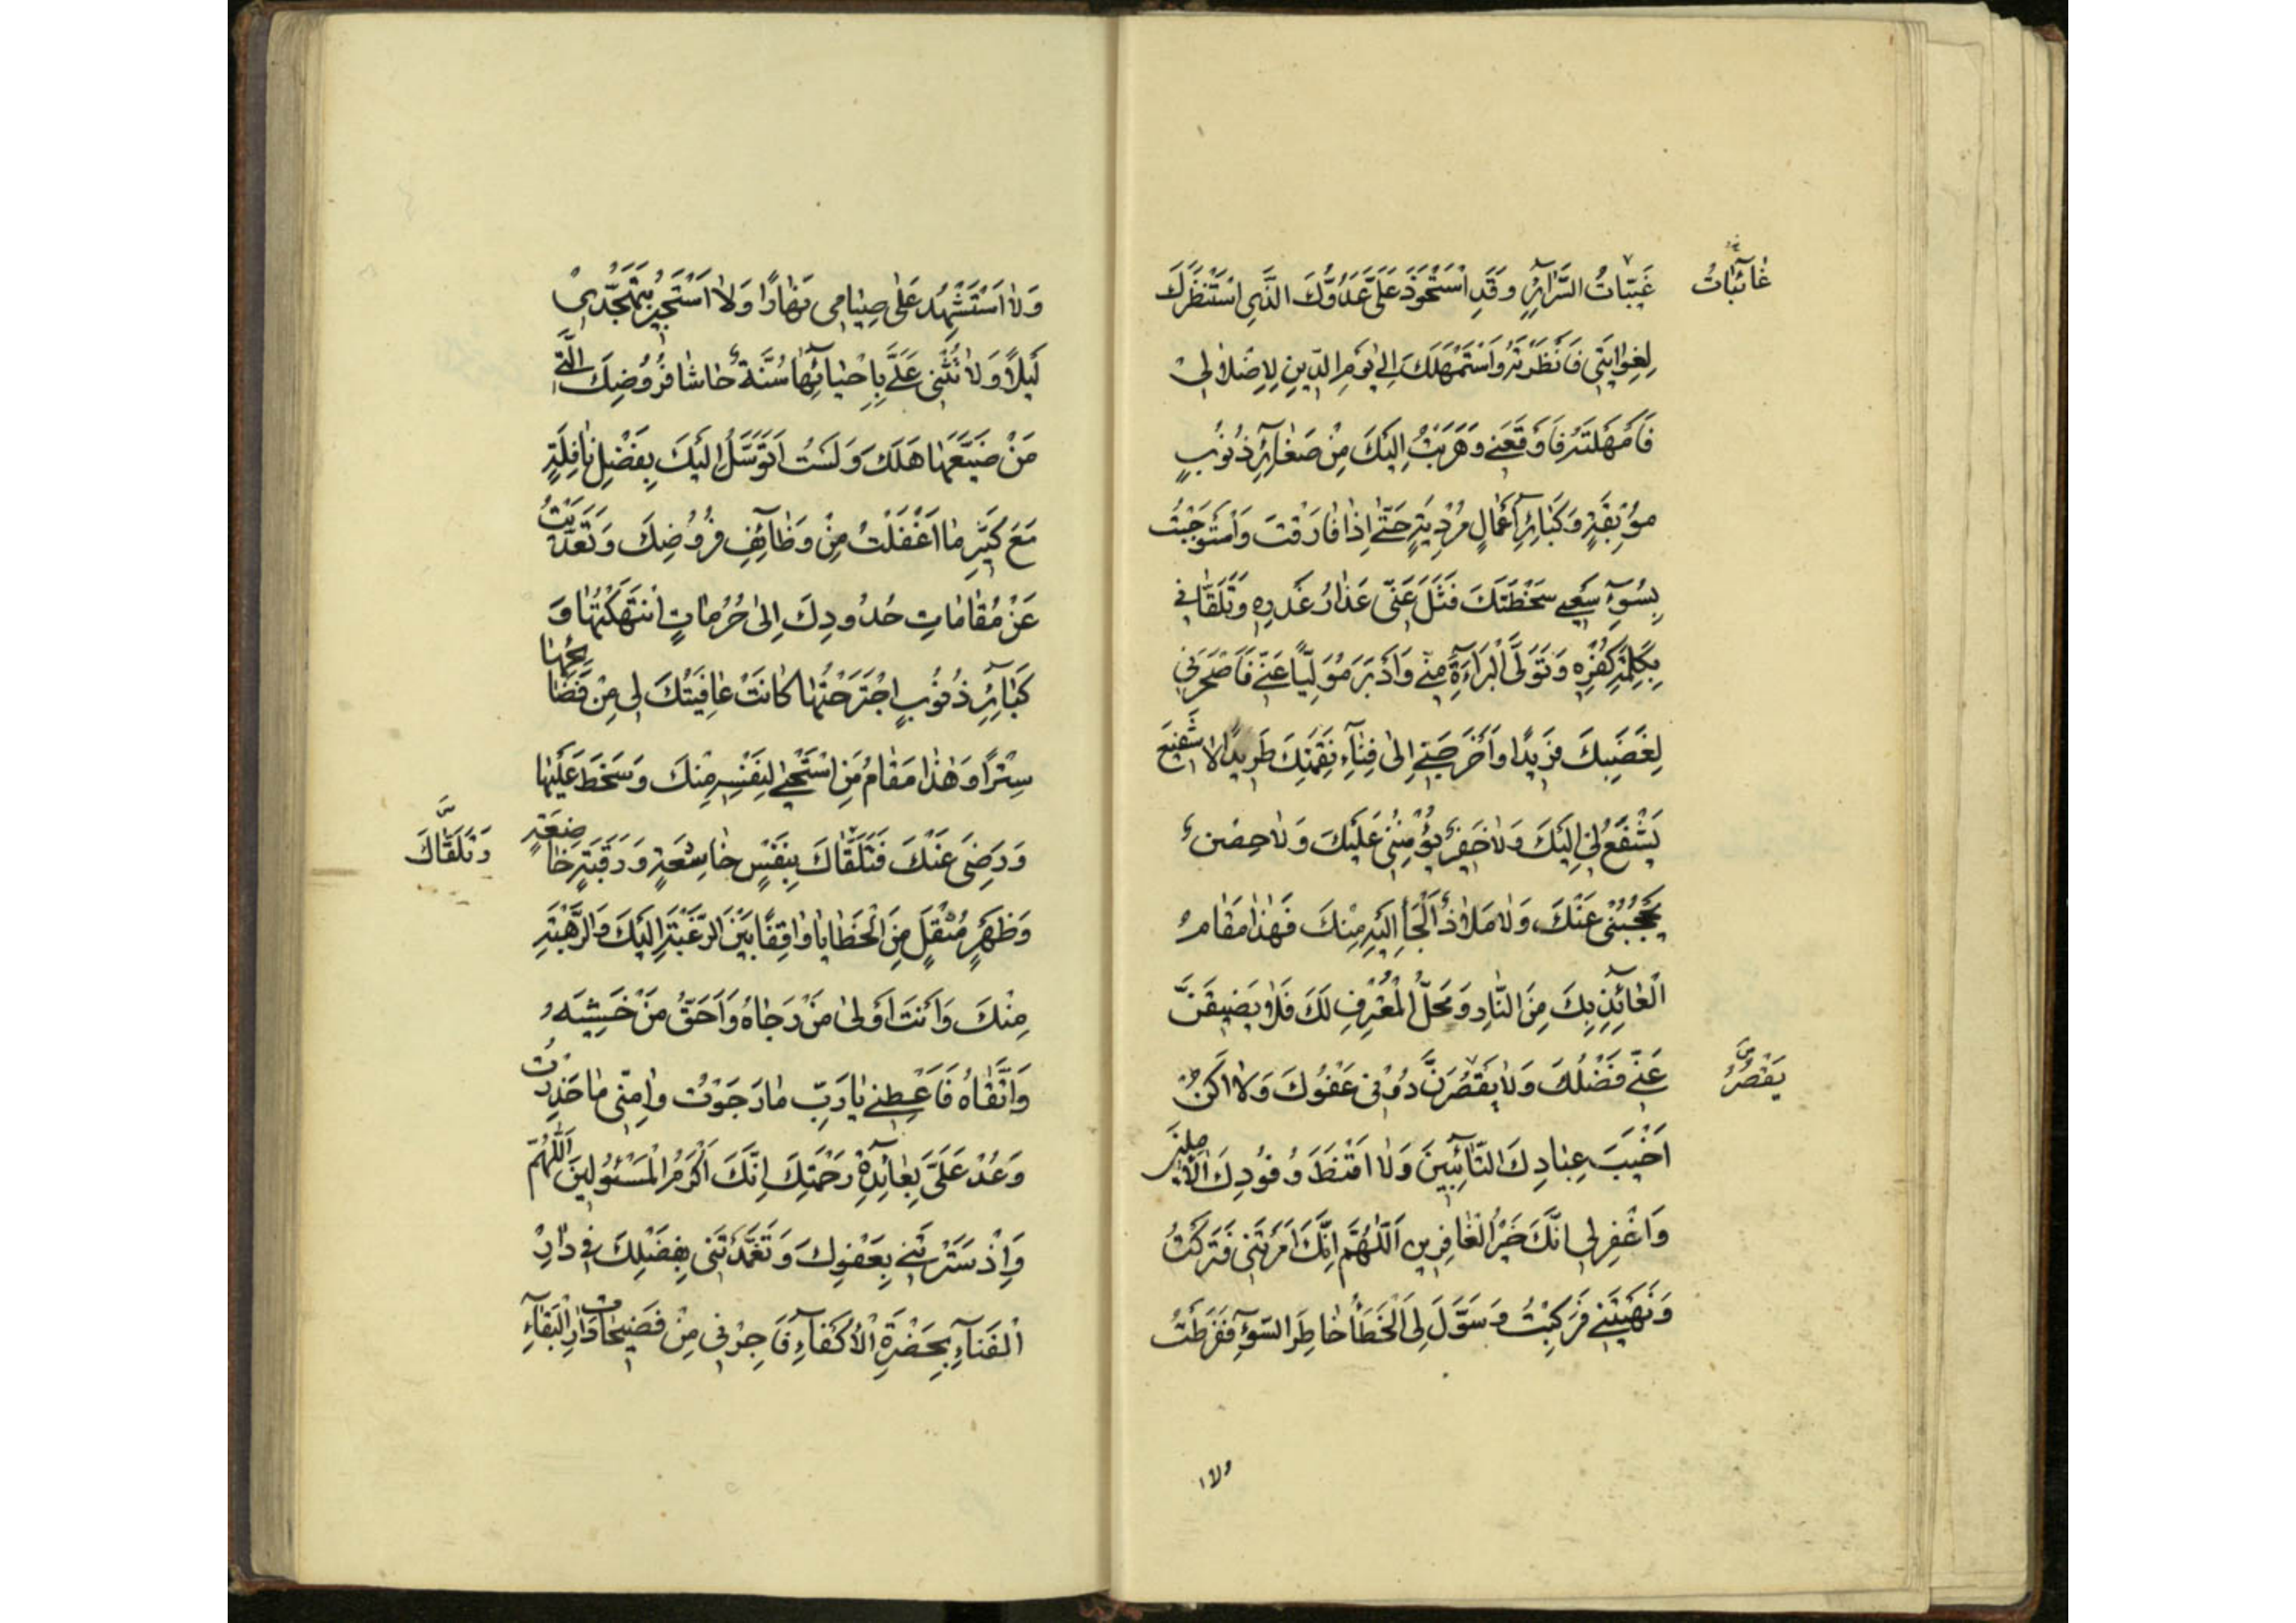 غَيِّبَاتُ السَّرَآئِرِ وَقَدِ اسْتَحْوَذَ عَلَىَّ عَدُوُّكَ الَّذِى اسْتَنْظَرَكَ
غَائِبَاتُ
لِغِوَايَتِى فَاَنْظَرْتَهُ وَاسْتَمْهَلَكَ اِلٰى يَوْمِ الدِّينِ لِاِضْلَالِى
فَاَمْهَلْتَهُ فَاَوْقَعَنِى وَهَرَبْتُ اِلَيْكَ مِنْ صَغَآئِرِ ذُنُوبٍ
مُوبِقَةٍ وَكَبَآئِرِ اَعْمَالٍ مُرْدِيَةٍ حَتّٰى اِذَا فَارَقْتُ وَاسْتَوْجَبْتُ
بِسُوٓءِ سَعْيِى سَخْطَتَكَ فَتَلَ عَنِّى عَذَارَ غَدْرِهِ وَتَلَقَّانِى
بِكَلِمَةِ كُفْرِهِ وَتَوَلَّى الْبَرَآءَةَ مِنِّى وَاَدْبَرَ مُوَلِّيًا عَنِّى فَاَصْحَرَنِى
لِغَضَبِكَ فَرِيدًا وَاَخْرَجَنِى اِلٰى فِنَآءِ نَقِمَتِكَ طَرِيدًا لَا شَفِيعٌ
يَشْفَعُ لِى اِلَيْكَ وَلَا خَفِيرٌ يُؤْمِنُنِى عَلَيْكَ وَلَا حِصْنٌ
يَحْجُبُنِى عَنْكَ وَلَا مَلَاذٌ اَلْجَأُ اِلَيْهِ مِنْكَ فَهٰذَا مَقَامُ
الْعَآئِذِ بِكَ مِنَ النَّارِ وَمَحَلُّ الْمُعْتَرِفِ لَكَ فَلَا يَضِيقَنَّ
عَنِّى فَضْلُكَ وَلَا يَقْصُرَنَّ دُونِى عَفْوُكَ وَلَا اَكُنْ
يَقْصُرُ
اَخْيَبَ عِبَادِكَ التَّآئِبِينَ وَلَا اَقْنَطَ وُفُودِكَ الْاٰمِلِينَ
وَاغْفِرْ لِى اِنَّكَ خَيْرُ الْغَافِرِينَ اَللّٰهُمَّ اِنَّكَ اَمَرْتَنِى فَتَرَكْتُ
وَنَهَيْتَنِى فَرَكِبْتُ وَسَوَّلَ لِىَ الْخَطَأَ خَاطِرُ السُّوٓءِ فَفَرَّطْتُ
ولا
وَلَا اَسْتَشْهِدُ عَلٰى صِيَامِى نَهَارًا وَلَا اَسْتَجِيرُ بِتَهَجُّدِى
لَيْلًا وَلَا تُثْنِى عَلَىَّ بِاِحْيَآئِهَا سُنَّةٌ حَاشَا فُرُوضِكَ الَّتِى
مَنْ ضَيَّعَهَا هَلَكَ وَلَسْتُ اَتَوَسَّلُ اِلَيْكَ بِفَضْلِ نَافِلَةٍ
مَعَ كَثِيرِ مَا اَغْفَلْتُ مِنْ وَظَآئِفِ فُرُوضِكَ وَتَعَدَّيْتُ
عَنْ مُقَامَاتِ حُدُودِكَ اِلٰى حُرُمَاتٍ انْتَهَكْتُهَا وَ
كَبَآئِرِ ذُنُوبٍ اجْتَرَحْتُهَا كَانَتْ عَافِيَتُكَ لِى مِنْ فَضَايِحِهَا
سِتْرًا وَهٰذَا مَقَامُ مَنِ اسْتَحْيٰى لِنَفْسِهِ مِنْكَ وَسَخَطَ عَلَيْهَا
وَرَضِىَ عَنْكَ فَتَلَقَّاكَ بِنَفْسٍ خَاشِعَةٍ وَرَقَبَةٍ خَاضِعَةٍ
وَتَلَقَّاكَ
وَظَهْرٍ مُثْقَلٍ مِنَ الْخَطَايَا وَاقِفًا بَيْنَ الرَّغْبَةِ اِلَيْكَ وَالرَّهْبَةِ
مِنْكَ وَاَنْتَ اَوْلٰى مَنْ رَجَاهُ وَاَحَقُّ مَنْ خَشِيَهُ
وَاتَّقَاهُ فَاَعْطِنِى يَا رَبِّ مَا رَجَوْتُ وَاٰمِنِّى مَا حَذِرْتُ
وَعُدْ عَلَىَّ بِعَآئِدَةِ رَحْمَتِكَ اِنَّكَ اَكْرَمُ الْمَسْئُولِينَ اَللّٰهُمَّ
وَاِذْ سَتَرْتَنِى بِعَفْوِكَ وَتَغَمَّدْتَنِى بِفَضْلِكَ فِى دَارِ
الْفَنَآءِ بِحَضْرَةِ الْاَكْفَآءِ فَاَجِرْنِى مِنْ فَضِيحَاتِ دَارِ الْبَقَآءِ